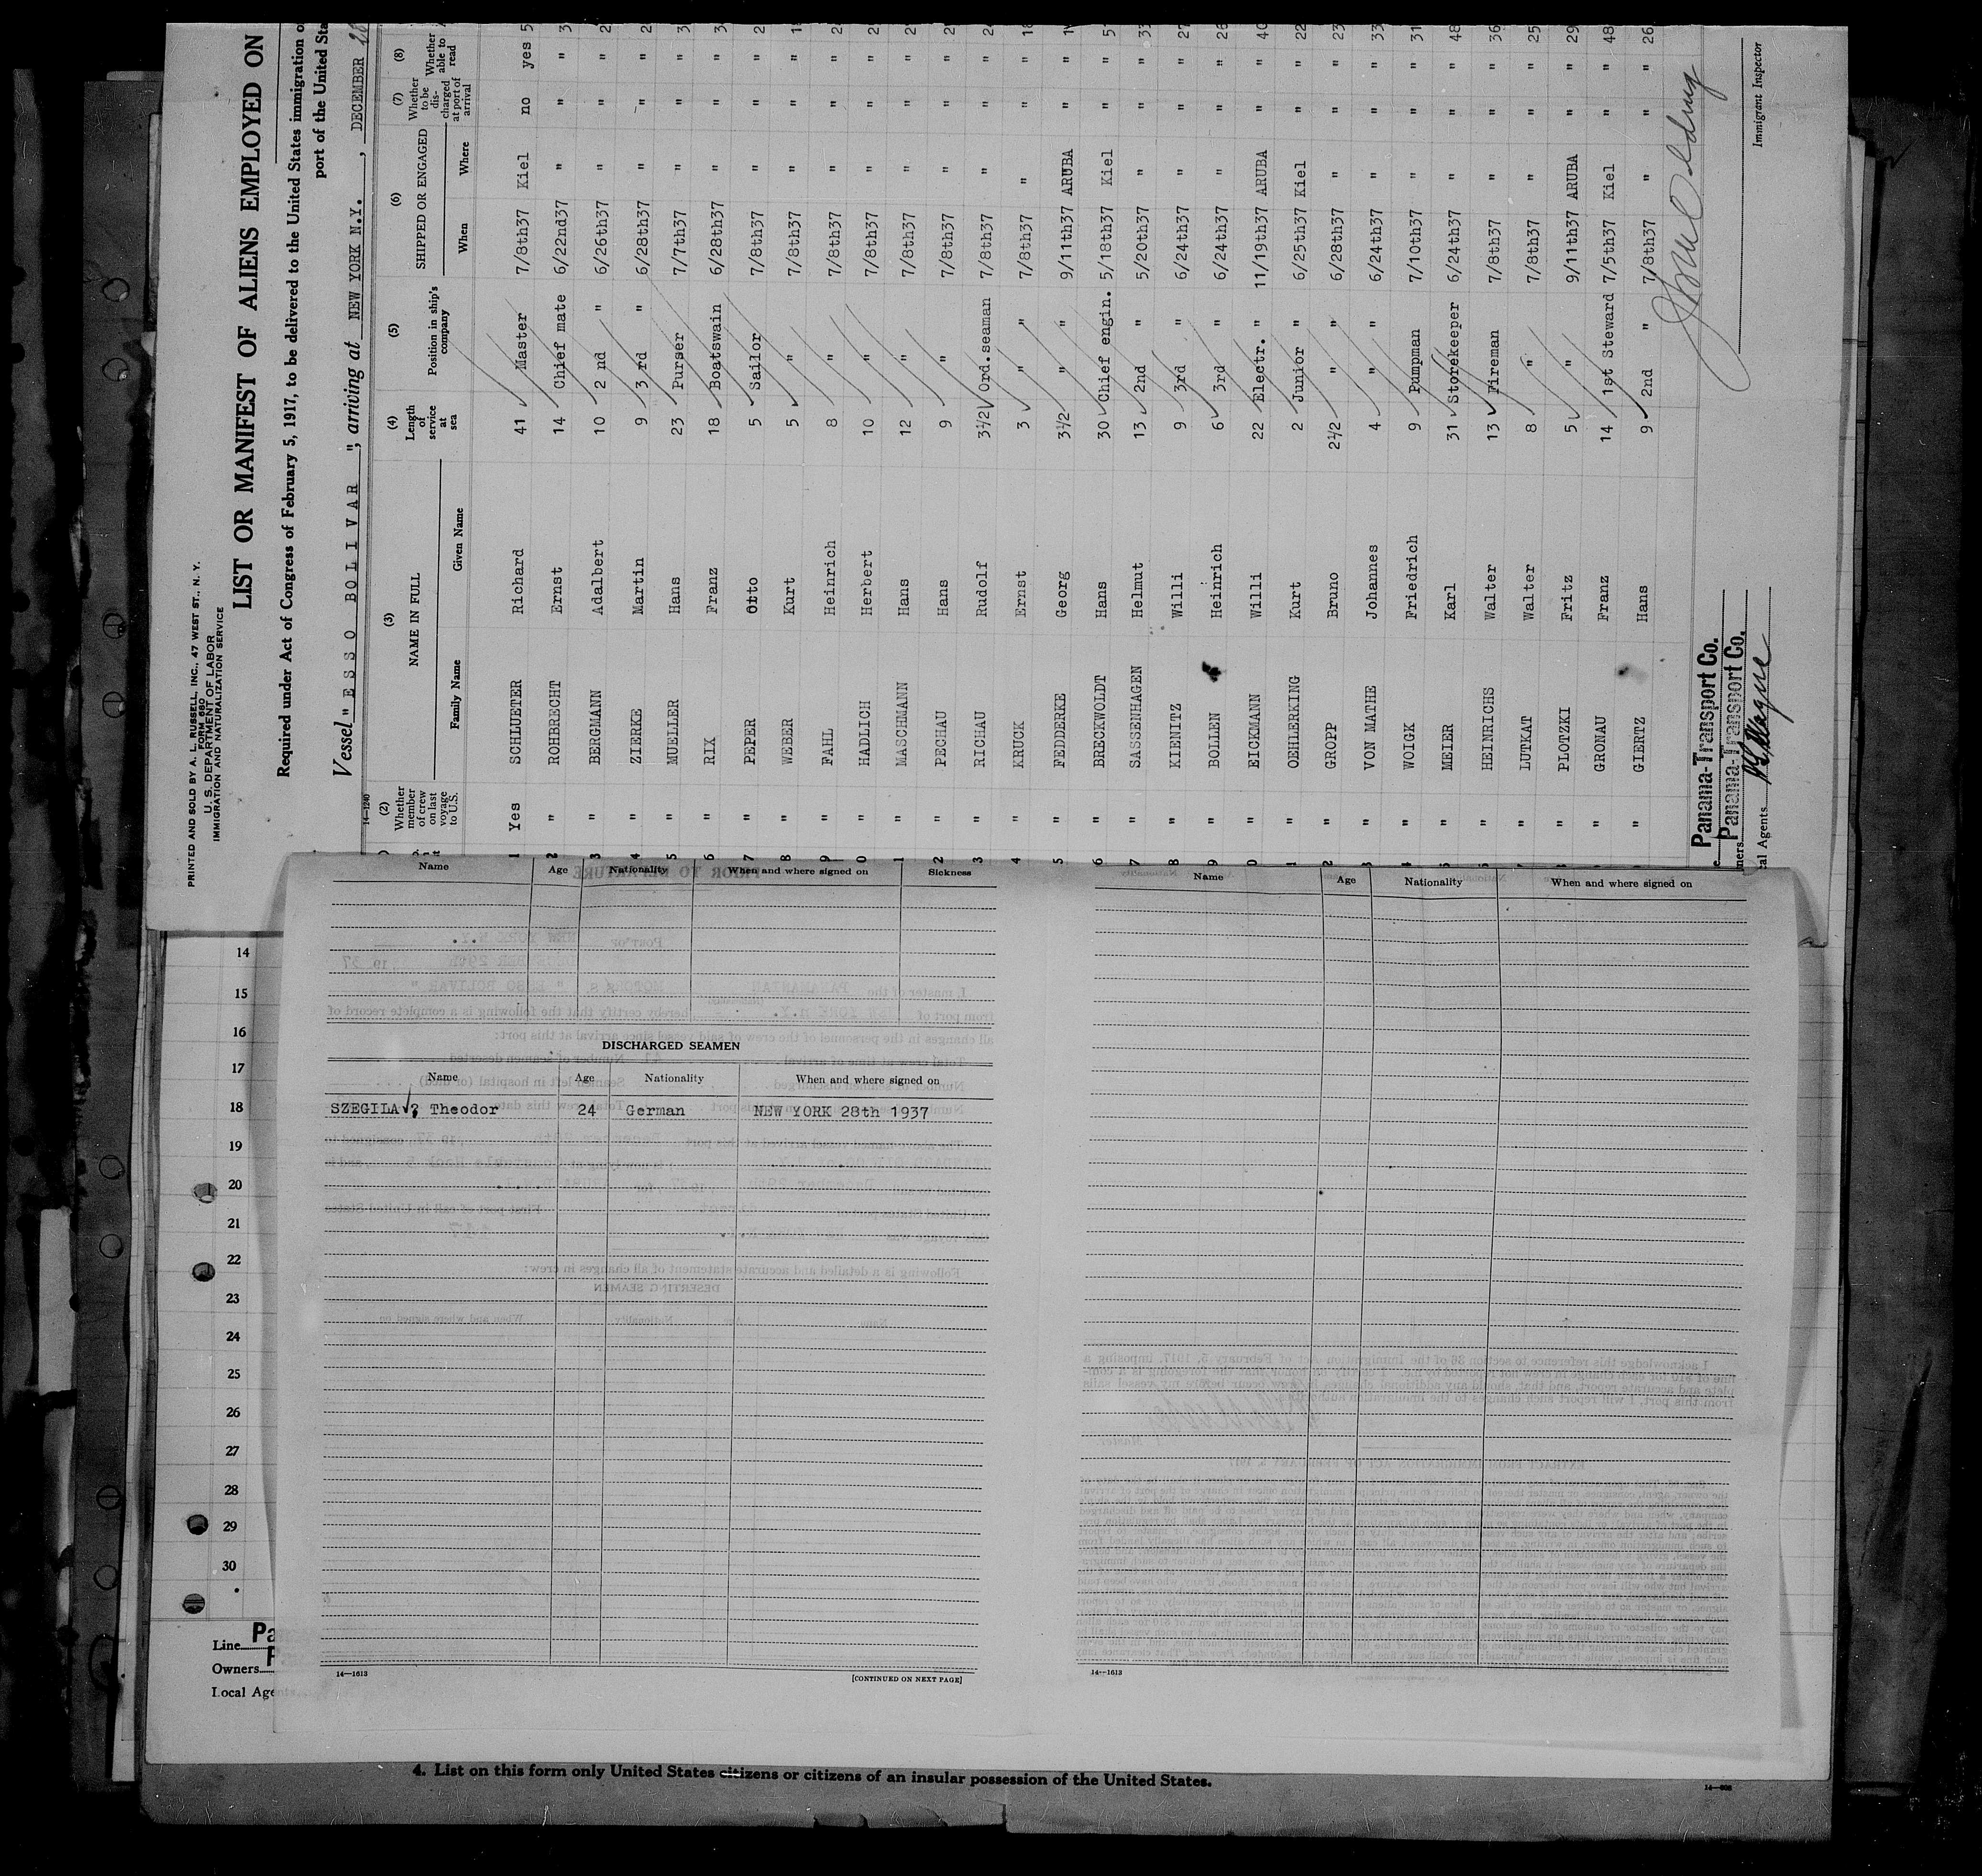 PRINTED AND SOLD BY A. L. RUSSELL, INC., 47 WEST ST., N. Y.
FORM 680
U. S. DEPARTMENT OF LABOR
IMMIGRATION AND NATURALIZATION SERVICE
LIST OR MANIFEST OF ALIENS EMPLOYED ON
Required under Act of Congress of February 5, 1917, to be delivered to the United States immigration
port of the United
Vessel " ESSO BOLIVAR ", arriving at NEW YORK N.Y. , DECEMBER
14—1240
(2) Whether member of crew on last voyage to U.S. (3) NAME IN FULL Family Name Given Name (4) Length of service at sea (5) Position in ship's company (6) SHIPPED OR ENGAGED When Where (7) Whether to be discharged at port of arrival (8) Whether able to read
1 Yes SCHLUETER Richard 41 Master 7/8th37 Kiel no yes 5
2 " ROHBRECHT Ernst 14 Chief mate 6/22nd37 " " " 3
3 " BERGMANN Adalbert 10 2 nd " 6/26th37 " " " 2
4 " ZIERKE Martin 9 3 rd " 6/28th37 " " " 2
5 " MUELLER Hans 23 Purser 7/7th37 " " " 3
6 " RIX Franz 18 Boatswain 6/28th37 " " " 3
7 " PEPER Otto 5 Sailor 7/8th37 " " " 2
8 " WEBER Kurt 5 " 7/8th37 " " " 1
9 " FAHL Heinrich 8 " 7/8th37 " " " 2
0 " HADLICH Herbert 10 " 7/8th37 " " " 2
1 " MASCHMANN Hans 12 " 7/8th37 " " " 2
2 " PECHAU Hans 9 " 7/8th37 " " " 2
3 " RICHAU Rudolf 3½ Ord.seaman 7/8th37 " " " 2
4 " KRUCK Ernst 3 " 7/8th37 " " " 18
5 " FEDDERKE Georg 3½ " 9/11th37 ARUBA " " 1
6 " BRECKWOLDT Hans 30 Chief engin. 5/18th37 Kiel " " 5
7 " SASSENHAGEN Helmut 13 2nd " 5/20th37 " " " 33
8 " KIENITZ Willi 9 3rd " 6/24th37 " " " 27
9 " BOLLEN Heinrich 6 3rd " 6/24th37 " " " 26
0 " EICKMANN Willi 22 Electr. " 11/19th37 ARUBA " " 40
1 " OEHLERKING Kurt 2 Junior " 6/25th37 Kiel " " 22
2 " GROPP Bruno 2½ " " 6/28th37 " " " 23
3 " VON MATHE Johannes 4 " " 6/24th37 " " " 33
4 " WOIGK Friedrich 9 Pumpman 7/10th37 " " " 31
5 " MEIER Karl 31 Storekeeper 6/24th37 " " " 48
6 " HEINRICHS Walter 13 Fireman 7/8th37 " " " 36
7 " LUTKAT Walter 8 " 7/8th37 " " " 25
8 " PLOTZKI Fritz 5 " 9/11th37 ARUBA " " 29
9 " GRONAU Franz 14 1st Steward 7/5th37 Kiel " " 48
0 " GIERTZ Hans 9 2nd " 7/8th37 " " " 26
Panama-Transport Co.
Panama-Transport Co.
Immigrant Inspector
Name Age Nationality When and where signed on Sickness
DISCHARGED SEAMEN
Name Age Nationality When and where signed on
SZEGILA, Theodor 24 German NEW YORK 28th 1937
14—1613
[CONTINUED ON NEXT PAGE]
Name Age Nationality When and where signed on
14—1613
14
15
16
17
18
19
20
21
22
23
24
25
26
27
28
29
30
Line
Owners
Local
4. List on this form only United States citizens or citizens of an insular possession of the United States.